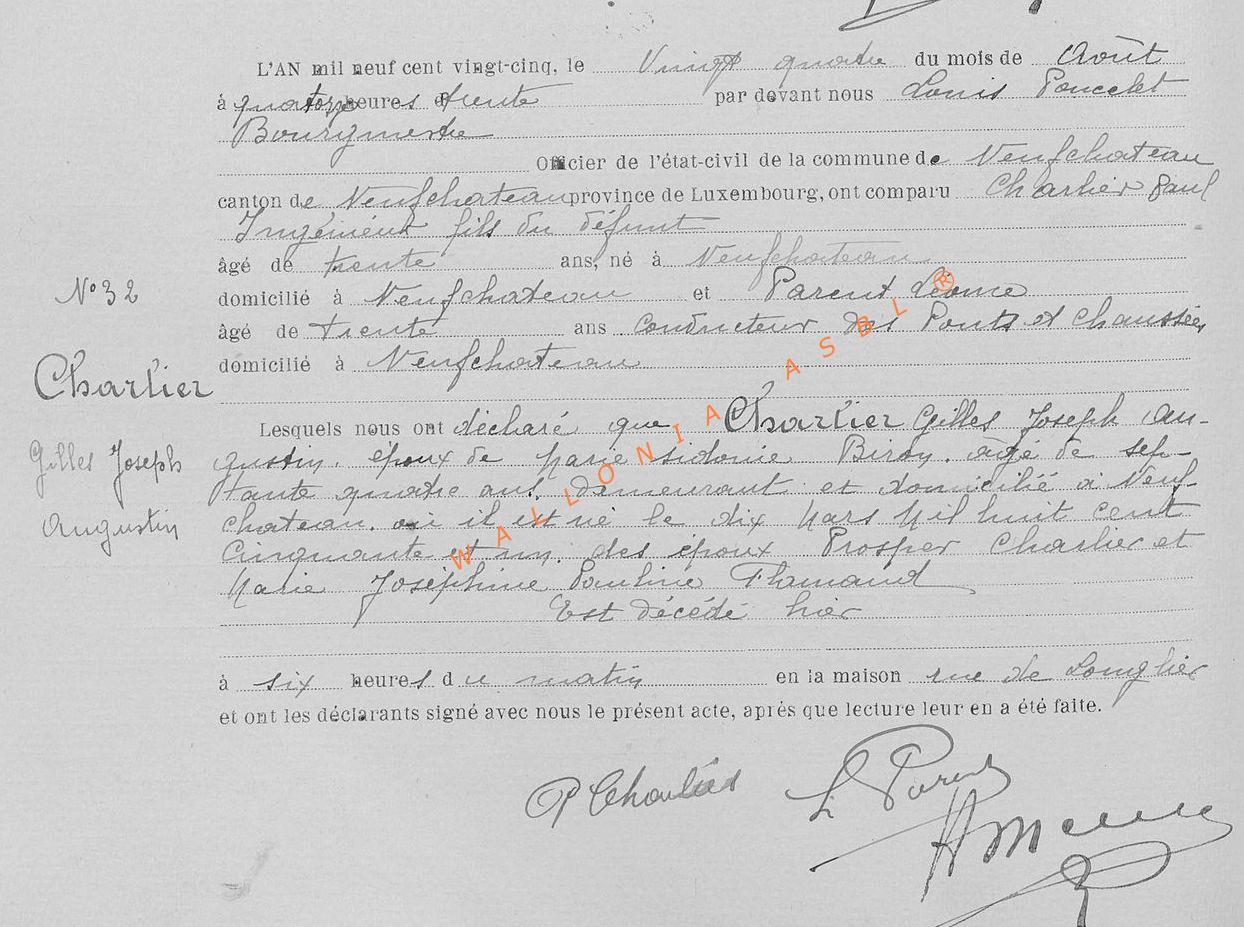 L'AN mil neuf cent vingt-cinq, le Vingt quatre du mois de Août
à quatorze heures et trente par devant nous Louis Poncelet
Bourgmestre
Officier de l'état-civil de la commune de Neufchateau
canton de Neufchateau province de Luxembourg, ont comparu Charlier Paul
Ingénieur fils du défunt
âgé de trente ans, né à Neufchateau
N° 32
domicilié à Neufchateau et Parent Léonce
âgé de trente ans Conducteur des Ponts et Chaussées
domicilié à Neufchateau
Charlier
Gilles Joseph
Augustin
Lesquels nous ont déclaré que Charlier Gilles Joseph Au-
gustin. époux de Marie Sidonie Biron. âgé de sep-
tante quatre ans. demeurant et domicilié à Neuf-
chateau. où il est né le dix Mars Mil huit cent
Cinquante et un. des époux Prosper Charlier et
Marie Joséphine Pauline Flamand
Est décédé hier
à six heures du matin en la maison rue de Longlier
et ont les déclarants signé avec nous le présent acte, après que lecture leur en a été faite.
P Charlier
L Parent
WALLONIA ASBL ®